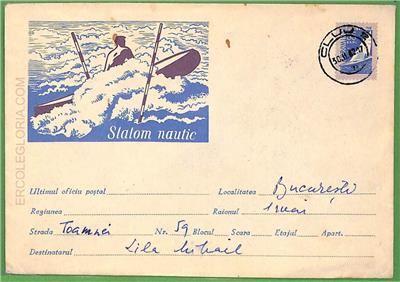 ERCOLEGLORIA.COM
CLUJ
Slalom nautic
Ultimul oficiu poștal Localitatea București
Regiunea Raionul 1 mai
Strada Toamnei Nr. 59 Blocul Scara Etajul Apart.
Destinatarul Lila Mihail